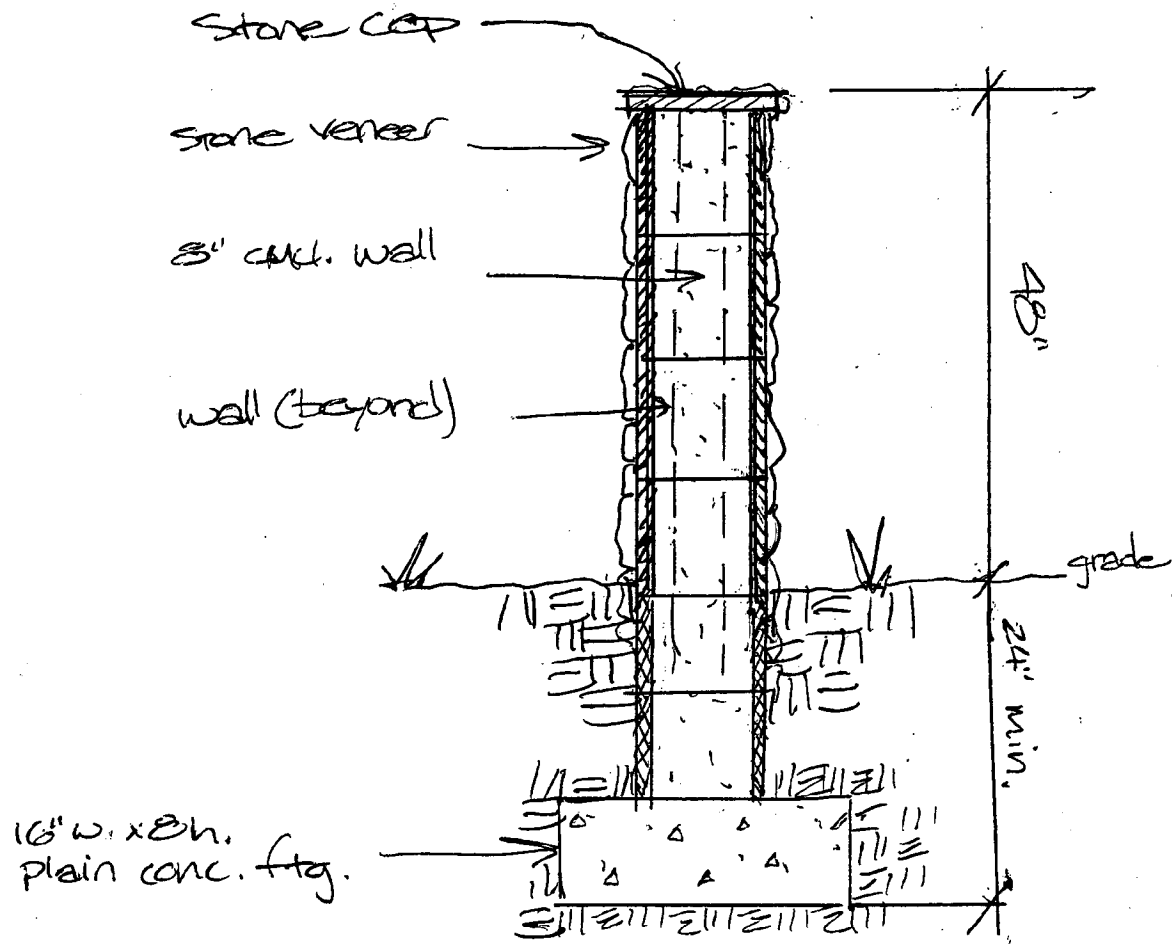 Stone Cap
Stone veneer
8" cmu. wall
wall (beyond)
48"
grade
24" min.
16" w. x 8h.
plain conc. ftg.